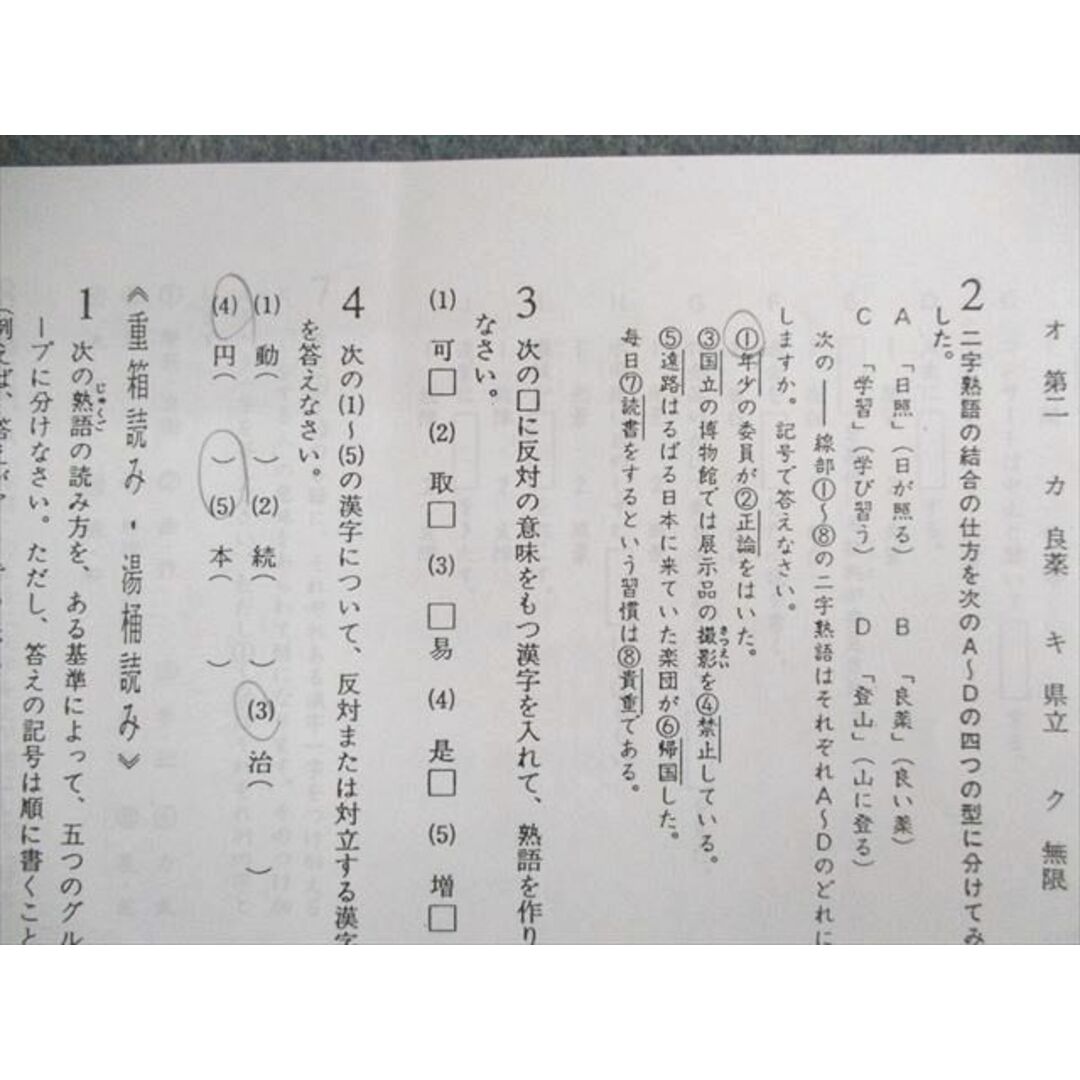 オ 第二 カ 良薬 キ 県立 ク 無限
2 二字熟語の結合の仕方を次のA〜Dの四つの型に分けてみ
した。
A 「日照」(日が照る) B 「良薬」(良い薬)
C 「学習」(学び習う) D 「登山」(山に登る)
次の―― 線部①〜⑧の二字熟語はそれぞれA〜Dのどれに
しますか。記号で答えなさい。
①年少の委員が②正論をはいた。
③国立の博物館では展示品の撮影さつえいを④禁止している。
⑤遠路はるばる日本に来ていた楽団が⑥帰国した。
毎日⑦読書をするという習慣は⑧貴重である。
3 次の□に反対の意味をもつ漢字を入れて、熟語を作り
なさい。
(1) 可□ (2) 取□ (3) □易 (4) 是□ (5) 増□
4 次の(1)〜(5)の漢字について、反対または対立する漢字
を答えなさい。
(1) 動( ) (2) 続( ) (3) 治( )
(4) 円( ) (5) 本( )
《重箱読み・湯桶読み》
1 次の熟語じゅくごの読み方を、ある基準によって、五つのグル
ープに分けなさい。ただし、答えの記号は順に書くこと
(例えば、答えが